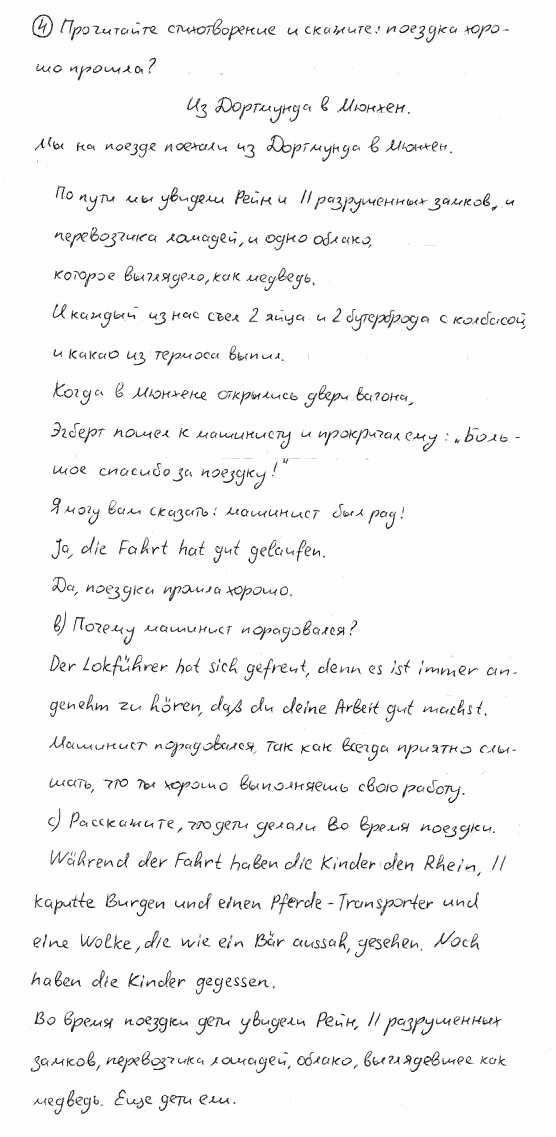 ④ Прочитайте стихотворение и скажите: поездка хоро-
шо прошла?
Из Дортмунда в Мюнхен.
Мы на поезде поехали из Дортмунда в Мюнхен.
По пути мы увидели Рейн и 11 разрушенных замков, и
перевозчика лошадей, и одно облако,
которое выглядело, как медведь.
И каждый из нас съел 2 яйца и 2 бутерброда с колбасой,
и какао из термоса выпил.
Когда в Мюнхене открылись двери вагона,
Эгберт пошел к машинисту и прокричал ему: „Боль-
шое спасибо за поездку!"
Я могу вам сказать: машинист был рад!
Ja, die Fahrt hat gut gelaufen.
Да, поездка прошла хорошо.
b) Почему машинист порадовался?
Der Lokführer hat sich gefreut, denn es ist immer an-
genehm zu hören, daß du deine Arbeit gut machst.
Машинист порадовался, так как всегда приятно слы-
шать, что ты хорошо выполняешь свою работу.
c) Расскажите, что дети делали во время поездки.
Während der Fahrt haben die Kinder den Rhein, 11
kaputte Burgen und einen Pferde-Transporter und
eine Wolke, die wie ein Bär aussah, gesehen. Noch
haben die Kinder gegessen.
Во время поездки дети увидели Рейн, 11 разрушенных
замков, перевозчика лошадей, облако, выглядевшее как
медведь. Еще дети ели.